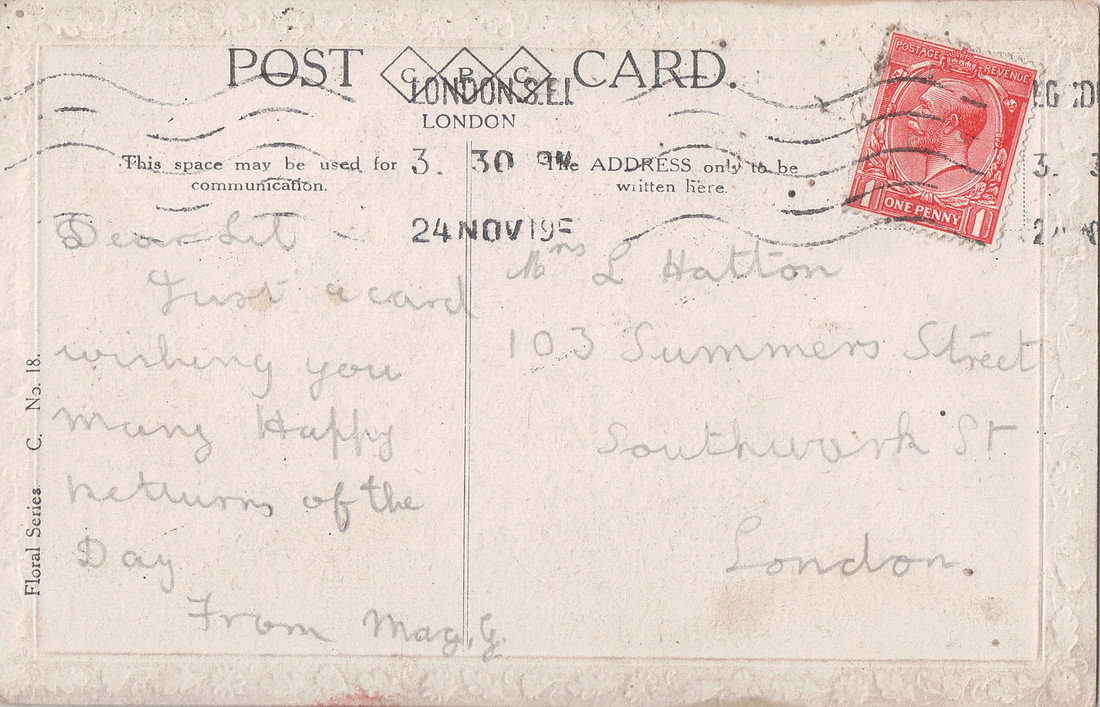 POST CPC CARD.
LONDON.S.E.1
LONDON
3. 30 PM
24 NOV 19
This space may be used for
communication.
The ADDRESS only to be
written here.
POSTAGE REVENUE
ONE PENNY
1 1
Dear Lit
Just a card
wishing you
Many Happy
Returns of the
Day
From Mag.G.
Mrs L Hatton
103 Summers Street
Southwark St
London.
Floral Series C. No. 18.